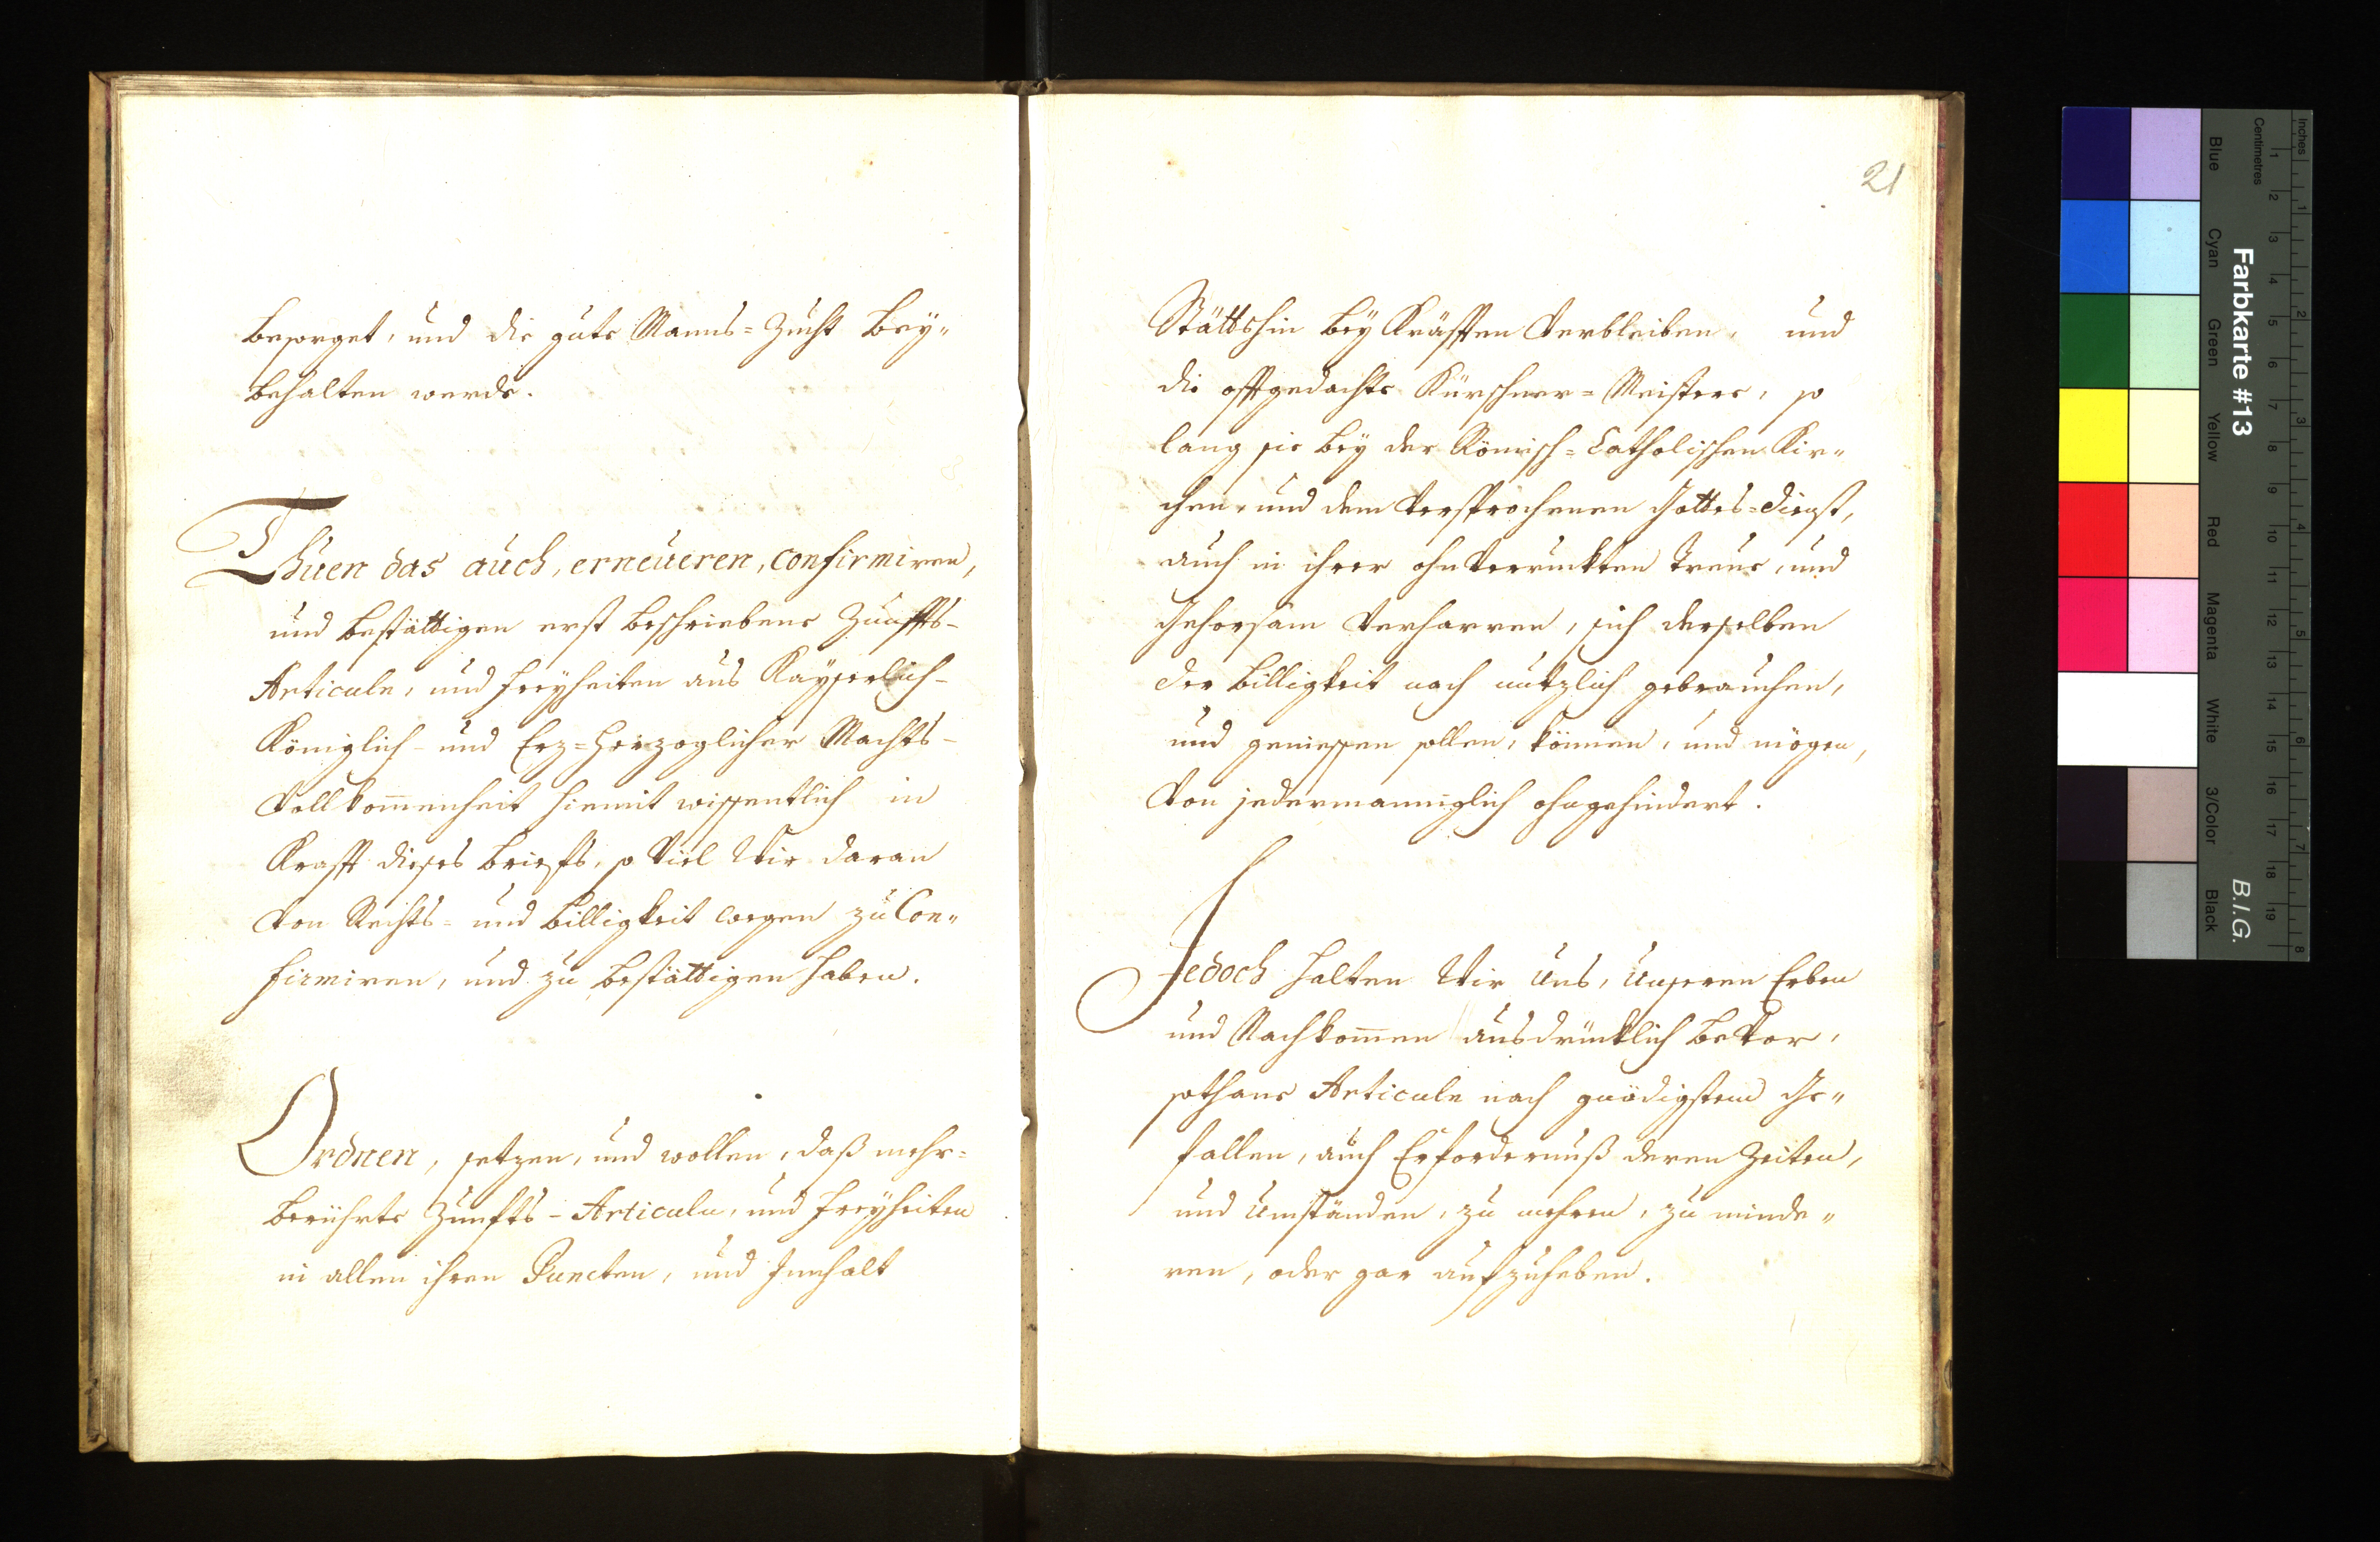 besorget, und die gute Manns=Zucht bey„
behalten werde.
Thuen das auch, erneueren, confirmiren,
und bestättigen erst beschriebene Zunffts-
Articuln, und Freyheiten aus Kayserlich-
Königlich- und Erz=Herzoglicher Machts-
Vollkom̄enheit hiemit wissentlich in
Krafft dieses Briefs, so viel Wir daran
von Rechts= und Billigkeit wegen zu Con„
firmiren, und zu bestättigen haben.
Ordnen, setzen, und wollen, daß mehr=
berührte Zunfts-Articuln, und Freyheiten
in allen ihren Puncten, und Innhalt
21
Stätts hin bey Kräfften verbleiben, und
die offtgedachte Kürschner=Meistere, so
lang sie bey der Römisch=Catholischen Kir„
chen, und dem versprochenen Gottes=Dienst,
auch in ihrer ohnverruckten Treue, und
Gehorsam verharren, sich derselben
der Billigkeit nach nutzlich gebrauchen,
und geniessen sollen, können, und mögen,
von jedermanniglich ohngehindert.
Jedoch halten Wir Uns, Unseren Erben
und Nachkom̄en ausdrücklich bevor,
sothane Articuln nach gnädigstem Ge„
fallen, auch Erfordernuß deren Zeiten,
und Umständen, zu mehren, zu minde„
ren, oder gar aufzuheben.
Inches
Centimetres
1 2 3 4 5 6 7 8 9 10 11 12 13 14 15 16 17 18 19
1 2 3 4 5 6 7 8
Farbkarte #13
B.I.G.
Blue
Cyan
Green
Yellow
Red
Magenta
White
3/Color
Black